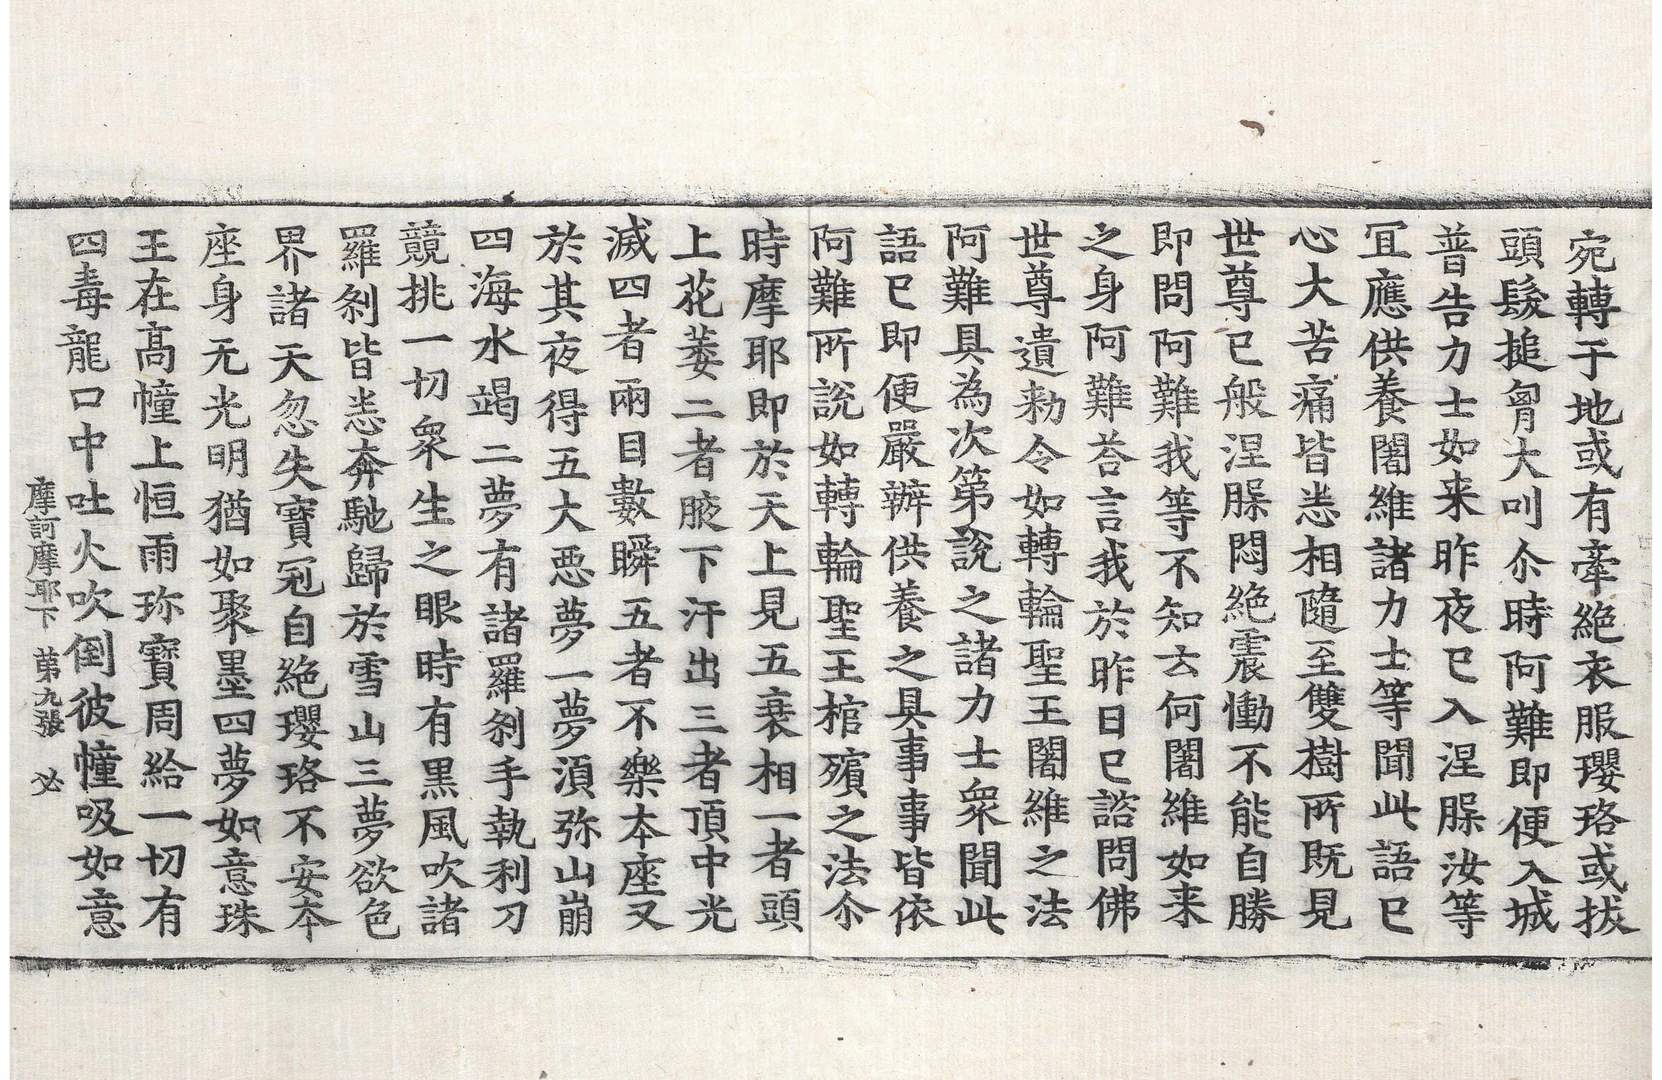 宛轉于地或有牽絶衣服瓔珞或拔
頭髮搥胷大叫尒時阿難即便入城
普告力士如来昨夜已入涅脲汝等
冝應供養闍維諸力士等聞此語已
心大苦痛皆悉相隨至雙樹所既見
世尊已般涅脲悶絶震慟不能自勝
即問阿難我等不知云何闍維如来
之身阿難荅言我於昨日已諮問佛
世尊遺勑令如轉輪聖王闍維之法
阿難具為次第說之諸力士衆聞此
語已即便嚴辦供養之具事事皆依
阿難所說如轉輪聖王棺殯之法尒
時摩耶即於天上見五衰相一者頭
上花萎二者腋下汗出三者頂中光
滅四者兩目數瞬五者不樂本座又
於其夜得五大惡夢一夢湏弥山崩
四海水竭二夢有諸羅剎手執利刀
競挑一切衆生之眼時有黒風吹諸
羅剎皆悉奔馳歸於雪山三夢欲色
界諸天忽失寶冠自絶瓔珞不安本
座身无光明猶如聚墨四夢如意珠
王在高幢上恒雨珎寶周給一切有
四毒龍口中吐火吹倒彼幢吸如意
摩訶摩耶下 第九張 必